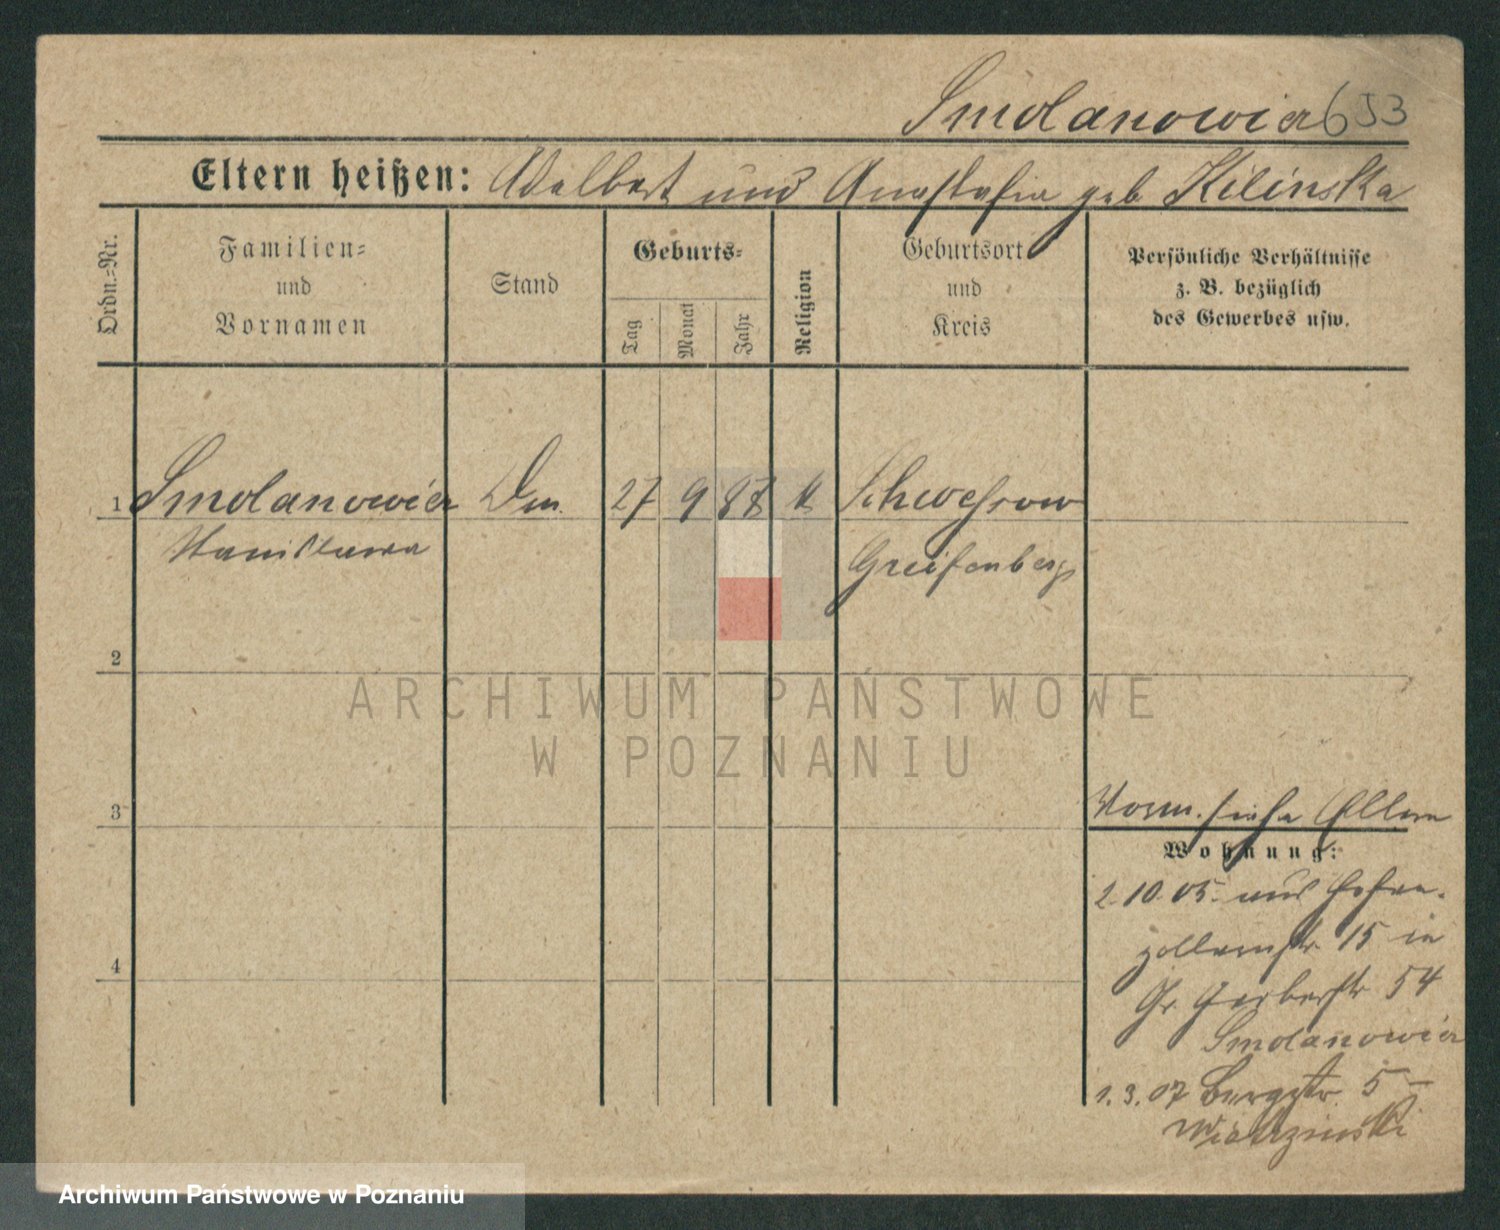 Smolanowicz 653
Eltern heißen: Adalbert und Anastasia geb Kilinska
Ordn.=Nr.
Familien=
und
Vornamen
Stand
Geburts=
Tag
Monat
Jahr
Religion
Geburtsort
und
Kreis
Persönliche Verhältnisse
z. B. bezüglich
des Gewerbes usw.
1 Smolanowicz 27 9 87 k Schwessow
Stanislawa Greifenberg
2
ARCHIWUM PAŃSTWOWE
W POZNANIU
3
siehe Eltern
Wohnung:
2.10.05. aus Hohen-
zollernstr 15 in
Gr Gerberstr 54
Smolanowicz
4
1.3.07 Bergstr 5
Archiwum Państwowe w Poznaniu